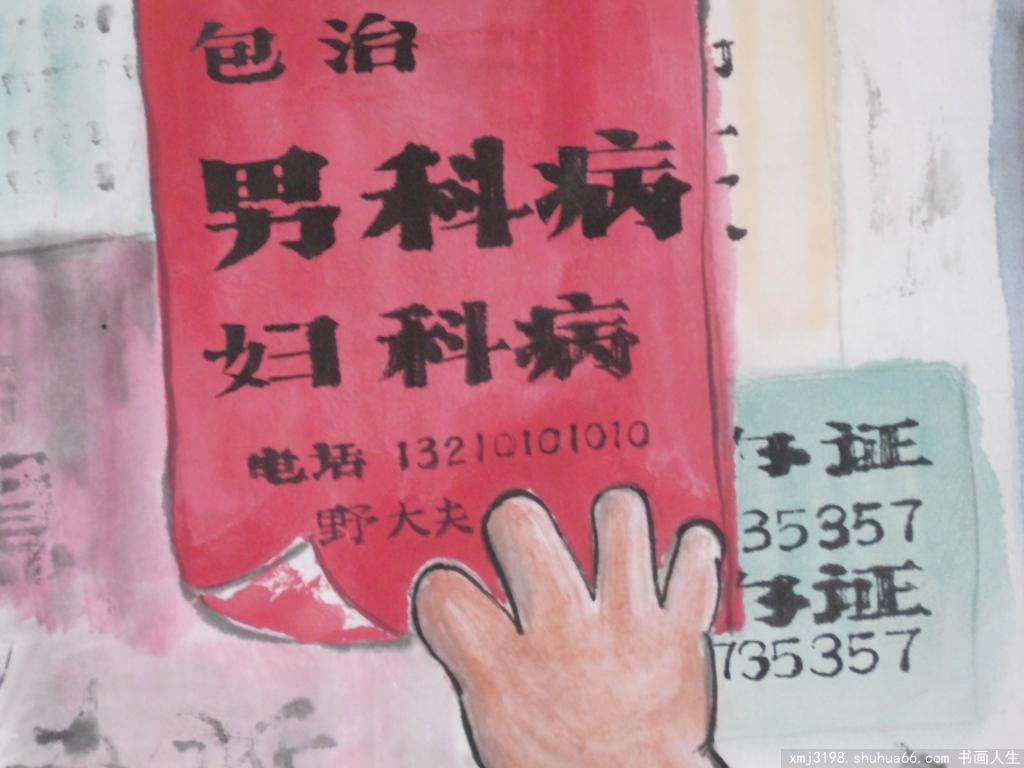 包治
男科病
妇科病
电话 13210101010
野大夫
证
35357
证
735357
xmj3198.shuhua66.com 书画人生